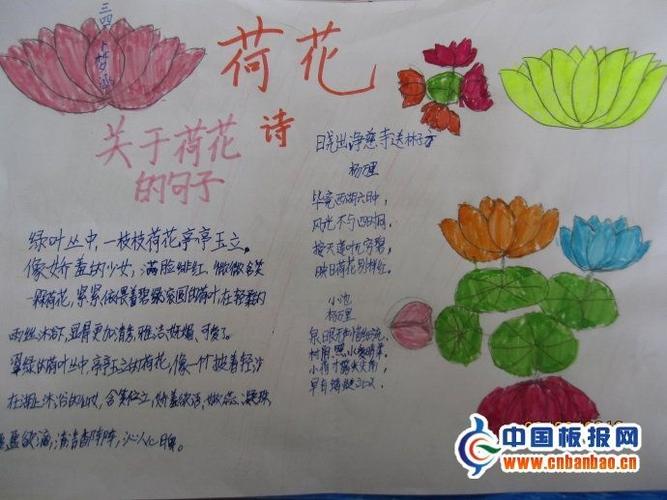 三四
荷花
诗
关于荷花
的句子
绿叶丛中,一枝枝荷花亭亭玉立。
像娇羞的少女,满脸绯红,微微含笑
一颗荷花,紧紧依偎着碧绿滚圆的荷叶,在轻柔的
雨丝沐浴下,显得更加清秀,雅洁、妩媚、可爱了。
翠绿的荷叶丛中,亭亭玉立的荷花,像一个披着轻沙
在湖上沐浴的仙女,含笑伫立,娇羞欲语,嫩蕊凝珠
盈盈欲滴,清香阵阵,沁人心脾。
晓出净慈寺送林子方
杨万里
毕竟西湖六月中,
风光不与四时同,
接天莲叶无穷碧,
映日荷花别样红。
小池
杨万里
泉眼无声惜细流,
树阴照水
小荷才露尖尖角,
早有蜻蜓立上
中国板报网
www.cnbanbao.cn